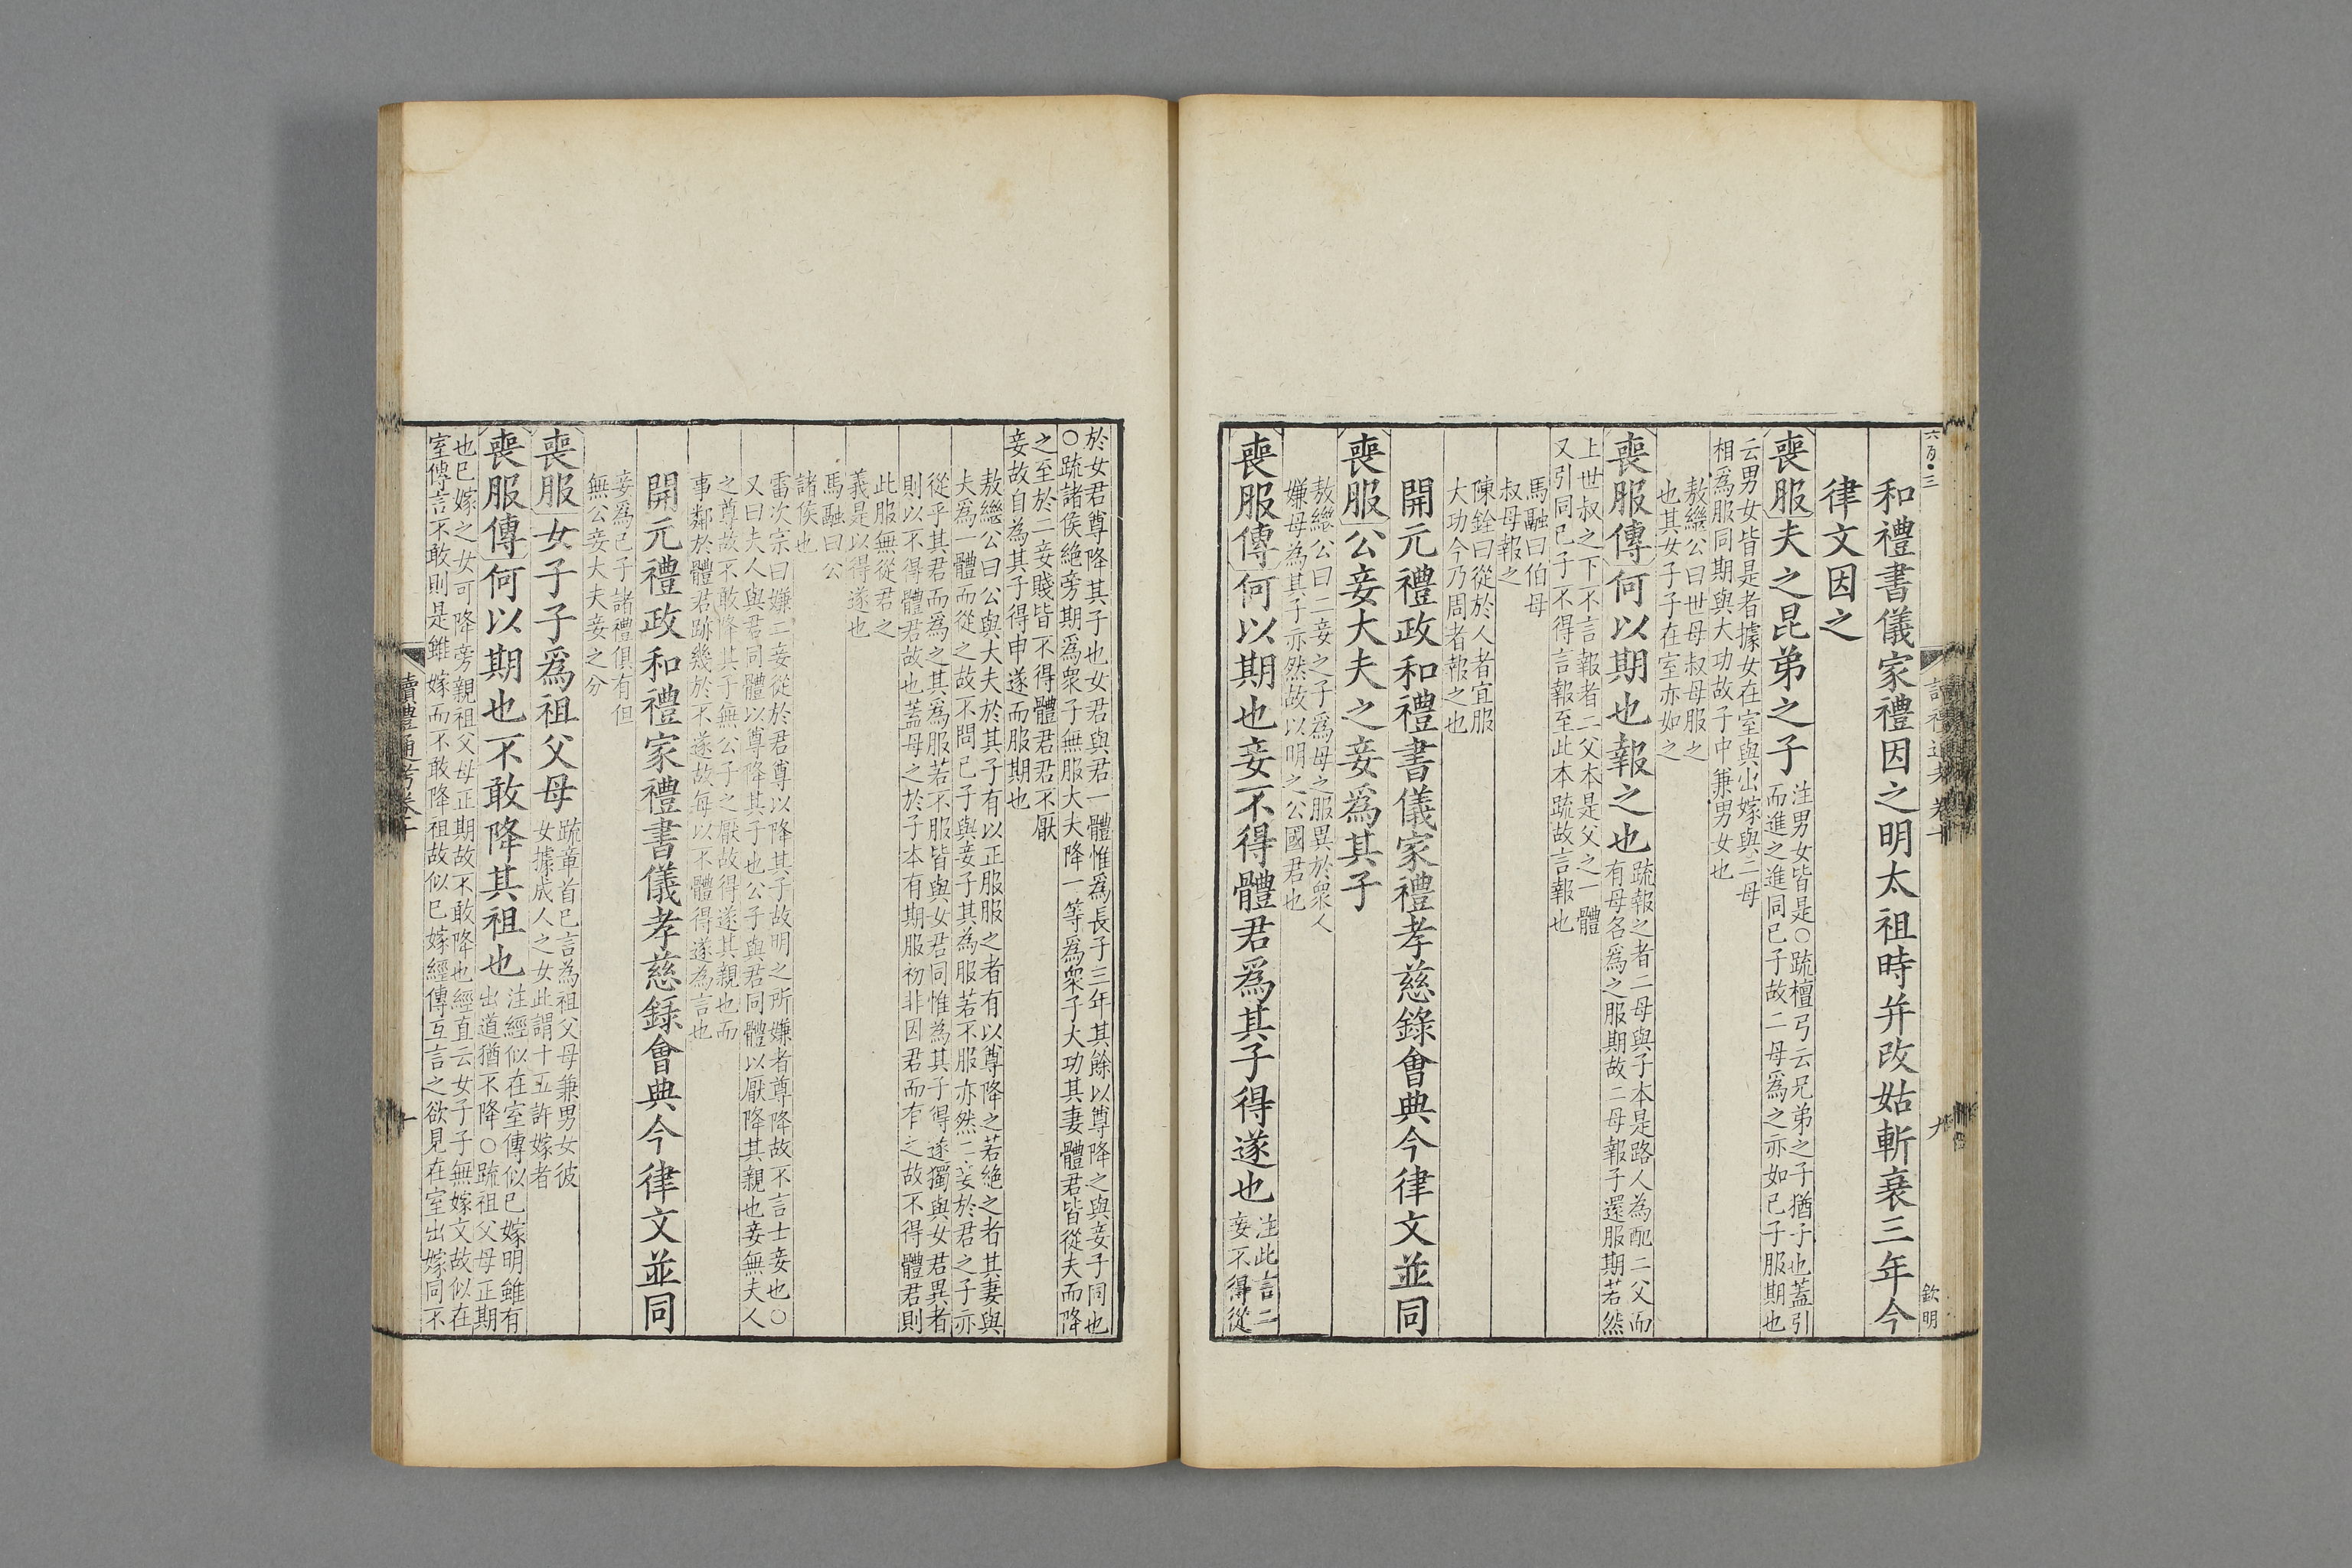 六百●三
欽明
和禮書儀家禮因之明太祖時并改姑斬衰三年今
律文因之
喪服夫之昆弟之子
注男女皆是○疏檀弓云兄弟之子猶子也蓋引
而進之進同己子故二母爲之亦如己子服期也
云男女皆是者據女在室與出嫁與二母
相爲服同期與大功故子中兼男女也
敖繼公曰世母叔母服之
也其女子子在室亦如之
喪服傳何以期也報之也
疏報之者二母與子本是路人為配二父而
有母名爲之服期故二母報子還服期若然
上世叔之下不言報者二父本是父之一體
又引同己子不得言報至此本疏故言報也
馬融曰伯母
叔母報之
陳銓曰從於人者宜服
大功今乃周者報之也
開元禮政和禮書儀家禮孝慈錄會典今律文並同
喪服公妾大夫之妾爲其子
敖繼公曰二妾之子爲母之服異於衆人
嫌母為其子亦然故以明之公國君也
喪服傳何以期也妾不得體君爲其子得遂也
注此言二
妾不得從
於女君尊降其子也女君與君一體惟爲長子三年其餘以尊降之與妾子同也
○疏諸侯絶旁期爲衆子無服大夫降一等爲衆子大功其妻體君皆從夫而降
之至於二妾賤皆不得體君君不厭
妾故自為其子得申遂而服期也
敖繼公曰公與大夫於其子有以正服服之者有以尊降之若絶之者其妻與
夫爲一體而從之故不問己子與妾子其為服若不服亦然二妾於君之子亦
從乎其君而為之其爲服若不服皆與女君同惟為其子得遂獨與女君異者
則以不得體君故也蓋母之於子本有期服初非因君而有之故不得體君則
此服無從君之
義是以得遂也
馬融曰公
諸侯也
雷次宗曰嫌二妾從於君尊以降其子故明之所嫌者尊降故不言士妾也○
又曰夫人與君同體以尊降其子也公子與君同體以厭降其親也妾無夫人
之尊故不敢降其子無公子之厭故得遂其親也而
事鄰於體君跡幾於不遂故每以不體得遂為言也
開元禮政和禮家禮書儀孝慈錄會典今律文並同
妾爲己子諸禮俱有但
無公妾大夫妾之分
喪服女子子爲祖父母
疏章首已言為祖父母兼男女彼
女據成人之女此謂十五許嫁者
喪服傳何以期也不敢降其祖也
注經似在室傳似已嫁明雖有
出道猶不降○疏祖父母正期
也已嫁之女可降旁親祖父母正期故不敢降也經直云女子子無嫁文故似在
室傳言不敢則是雖嫁而不敢降祖故似已嫁經傳互言之欲見在室出嫁同不
讀禮通考卷十